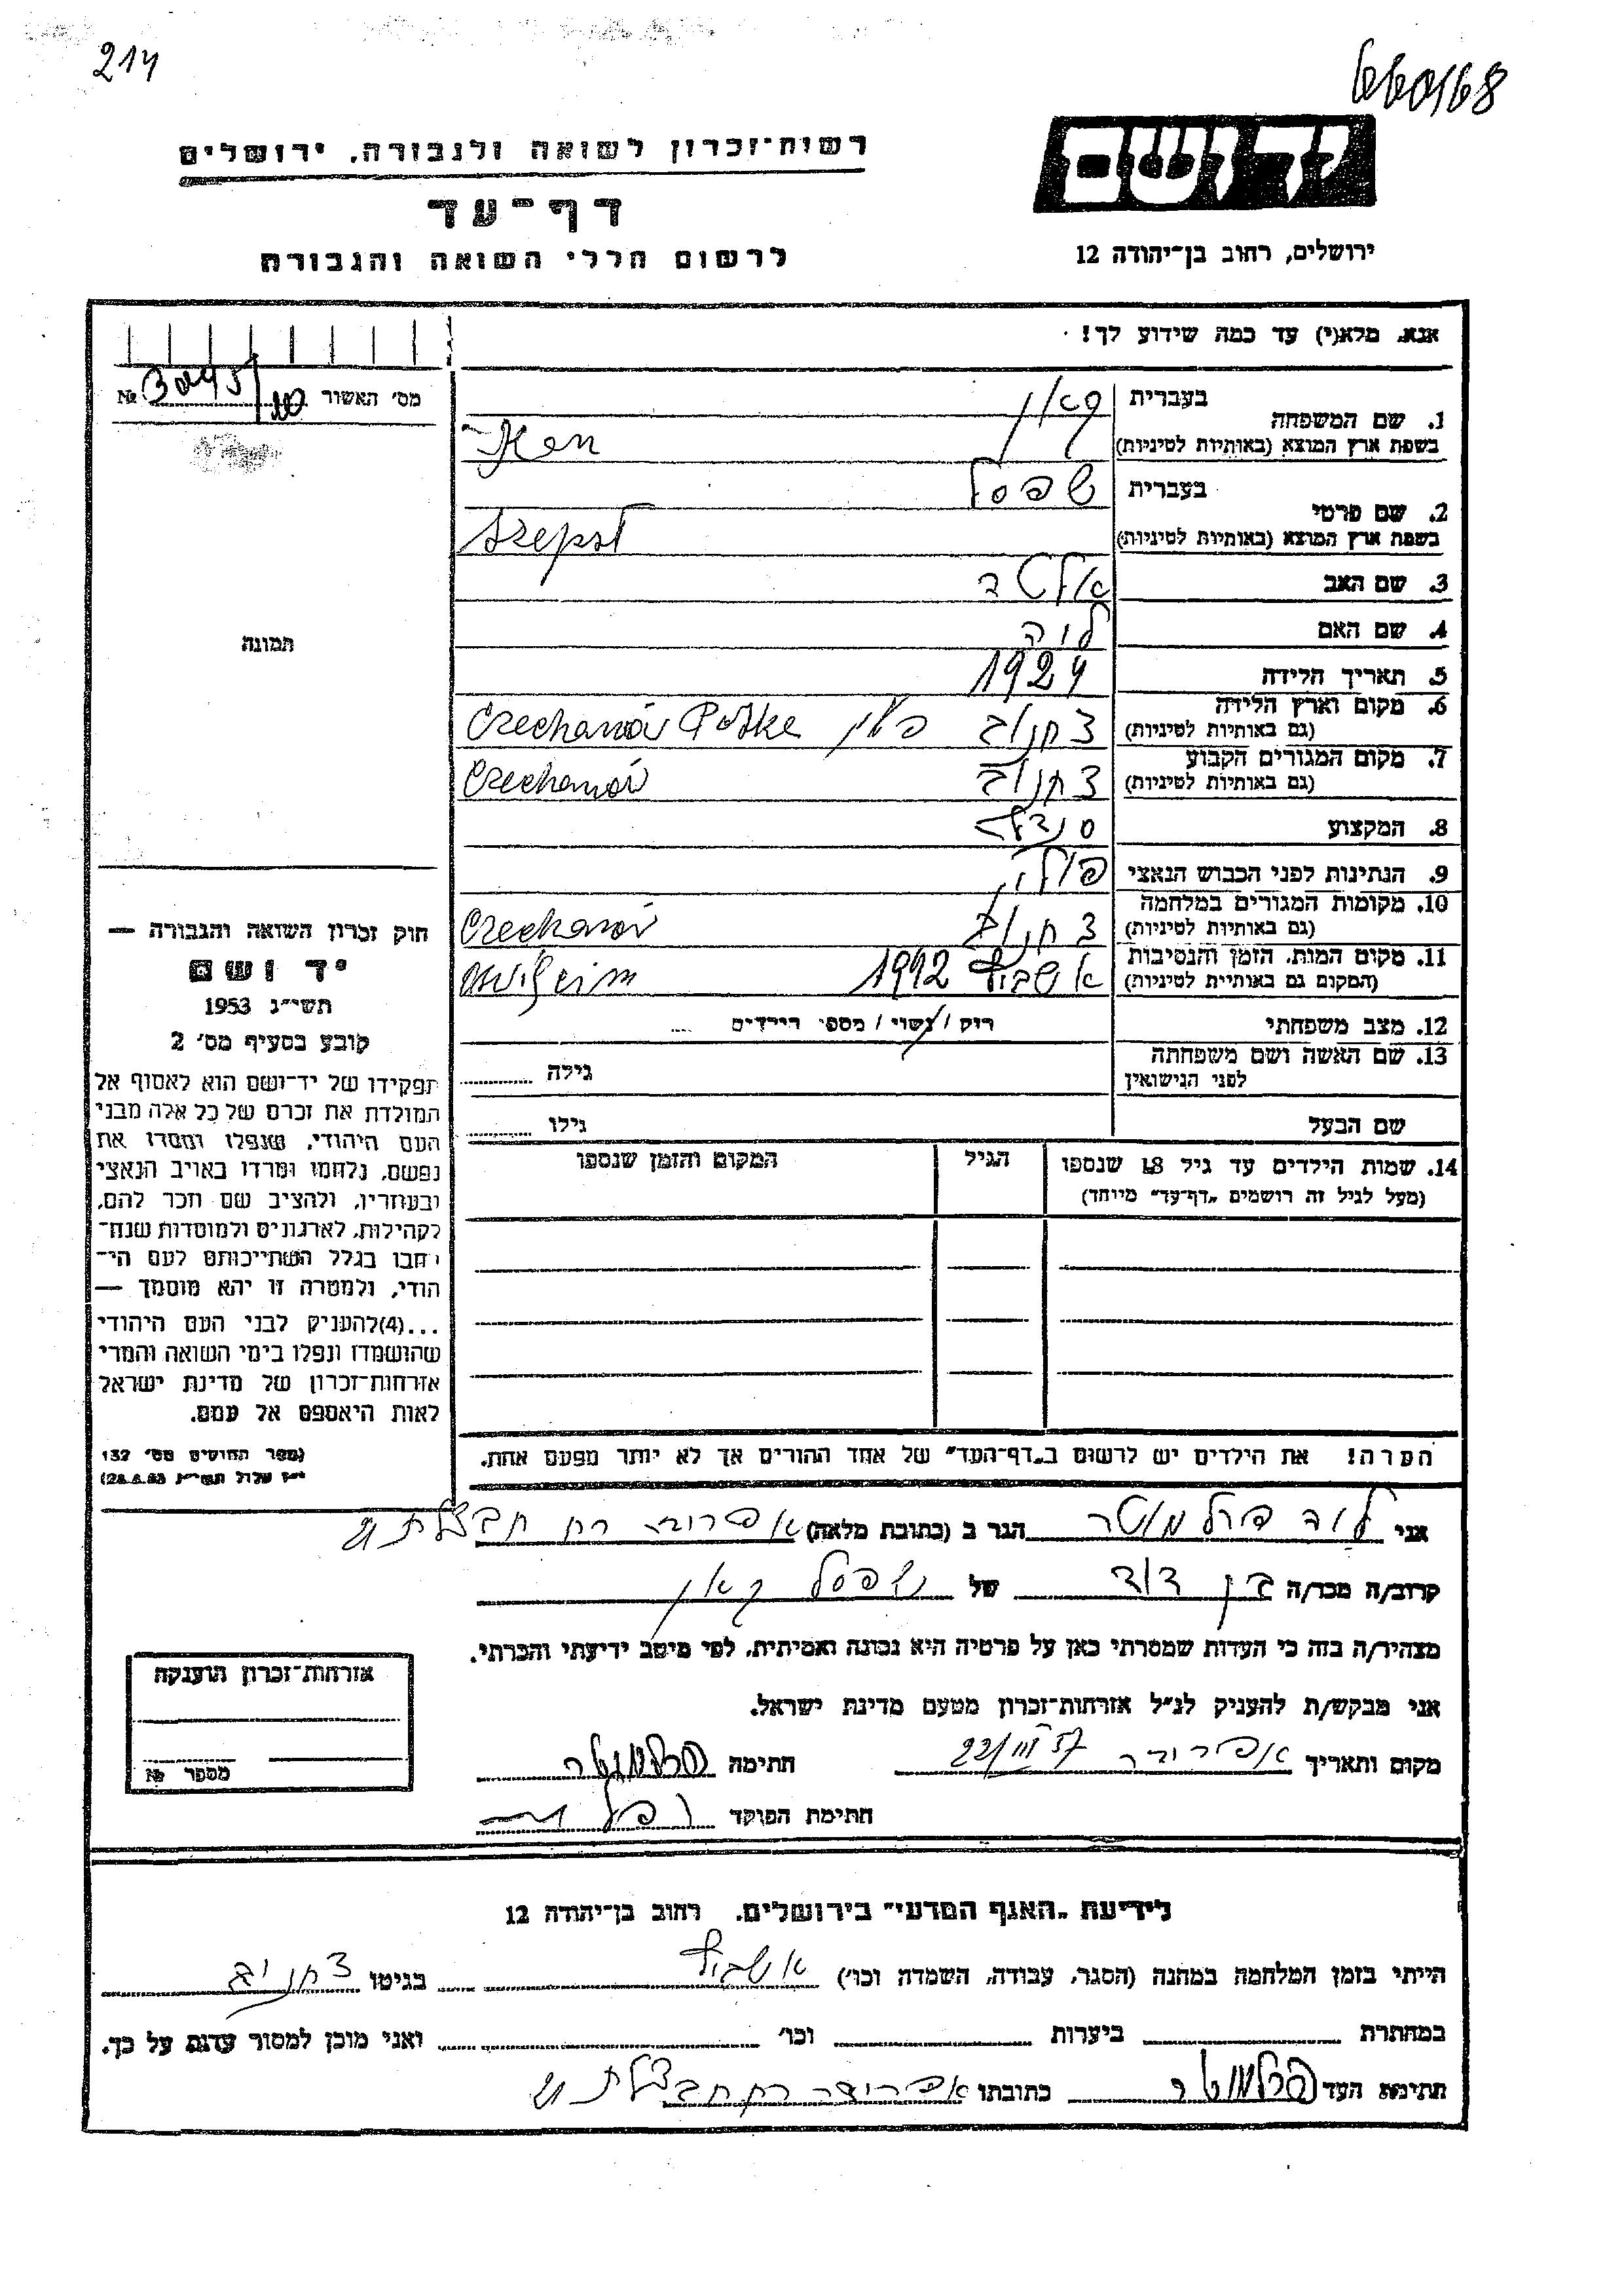 214
660/68
רשות־זכרון לשואה ולגבורה, ירושלים
דף־עד
לרשום חללי השואה והגבורה
יד ושם
ירושלים, רחוב בן־יהודה 12
אנא, מלא(י) עד כמה שידוע לך!
מס׳ האשור № 3095/
תמונה
1. שם המשפחה בעברית קאן
בשפת ארץ המוצא (באותיות לטיניות) Ken
2. שם פרטי בעברית שפסל
בשפת ארץ המוצא (באותיות לטיניות) Szepsl
3. שם האב אלטר
4. שם האם
5. תאריך הלידה 1924
6. מקום וארץ הלידה (גם באותיות לטיניות) צחנוב פולין Czechanów Polske
7. מקום המגורים הקבוע (גם באותיות לטיניות) צחנוב Czechanów
8. המקצוע סנדלר
9. הנתינות לפני הכבוש הנאצי פולני
10. מקומות המגורים במלחמה (גם באותיות לטיניות) צחנוב Czechanów
11. מקום המות, הזמן והנסיבות (המקום גם באותיות לטיניות) אושביץ 1942
12. מצב משפחתי רוק / נשוי / מספר הילדים
13. שם האשה ושם משפחתה לפני הנישואין גילה
שם הבעל גילו
14. שמות הילדים עד גיל 18 שנספו הגיל המקום והזמן שנספו
(מעל לגיל זה רושמים „דף־עד״ מיוחד)
הערה! את הילדים יש לרשום ב„דף־העד״ של אחד ההורים אך לא יותר מפעם אחת.
חוק זכרון השואה והגבורה —
יד ושם
תשי״ג 1953
קובע בסעיף מס׳ 2
תפקידו של יד־ושם הוא לאסוף אל
המולדת את זכרם של כל אלה מבני
העם היהודי, שנפלו ומסרו את
נפשם, נלחמו ומרדו באויב הנאצי
ובעוזריו, ולהציב שם וזכר להם,
לקהילות, לארגונים ולמוסדות שנח־
רבו בגלל השתייכותם לעם הי־
הודי, ולמטרה זו יהא מוסמך —
...(4) להעניק לבני העם היהודי
שהושמדו ונפלו בימי השואה והמרי
אזרחות־זכרון של מדינת ישראל
לאות היאספם אל עמם.
(ספר החוקים מס׳ 132
י״ז אלול תשי״ג 28.8.53)
אני פרלמוטר הגר ב (כתובת מלאה) אפרידר רח חבצלת
קרוב/ה מכר/ה בן דוד של שפסל קאן
מצהיר/ה בזה כי העדות שמסרתי כאן על פרטיה היא נכונה ואמיתית, לפי מיטב ידיעתי והכרתי.
אני מבקש/ת להעניק לנ״ל אזרחות־זכרון מטעם מדינת ישראל.
מקום ותאריך אפרידר 22/III 57 חתימה פרלמוטר
חתימת הפוקד
אזרחות־זכרון הוענקה
מספר №
לידיעת „האגף המדעי״ בירושלים, רחוב בן־יהודה 12
הייתי בזמן המלחמה במחנה (הסגר, עבודה, השמדה וכו׳) אושביץ בגיטו צחנוב
במחתרת ביערות וכו׳ ואני מוכן למסור עדות על כך.
חתימת העד פרלמוטר כתובתו אפרידר רח חבצלת